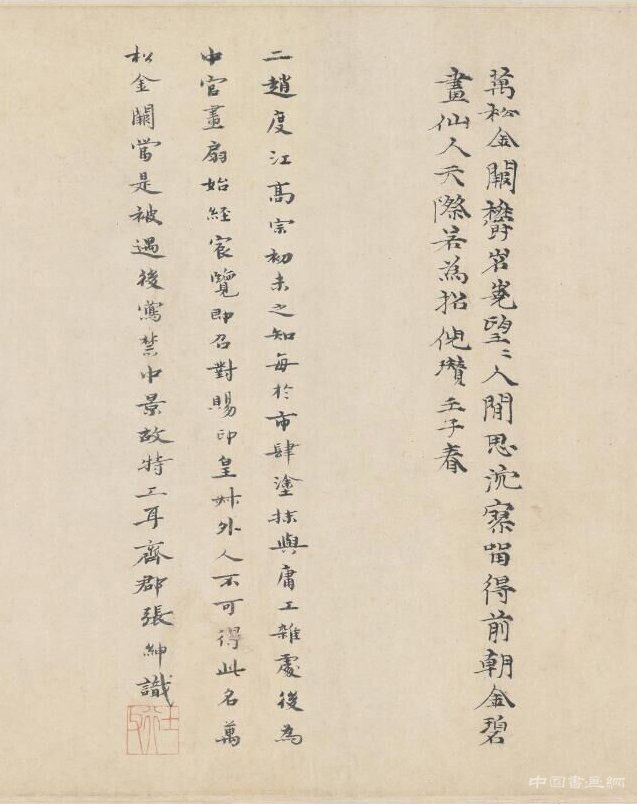 萬松金闕欝岧嶤望〻人間思泬寥留得前朝金碧
畫仙人天際若為招倪瓚壬子春
二趙度江髙宗初未之知每於市肆塗抹與庸工雜處後為
中官畫扇始經宸覽即召對賜印皇叔外人不可得此名萬
松金闕當是被遇後寫禁中景故特工耳齊郡張紳識
中国書画網